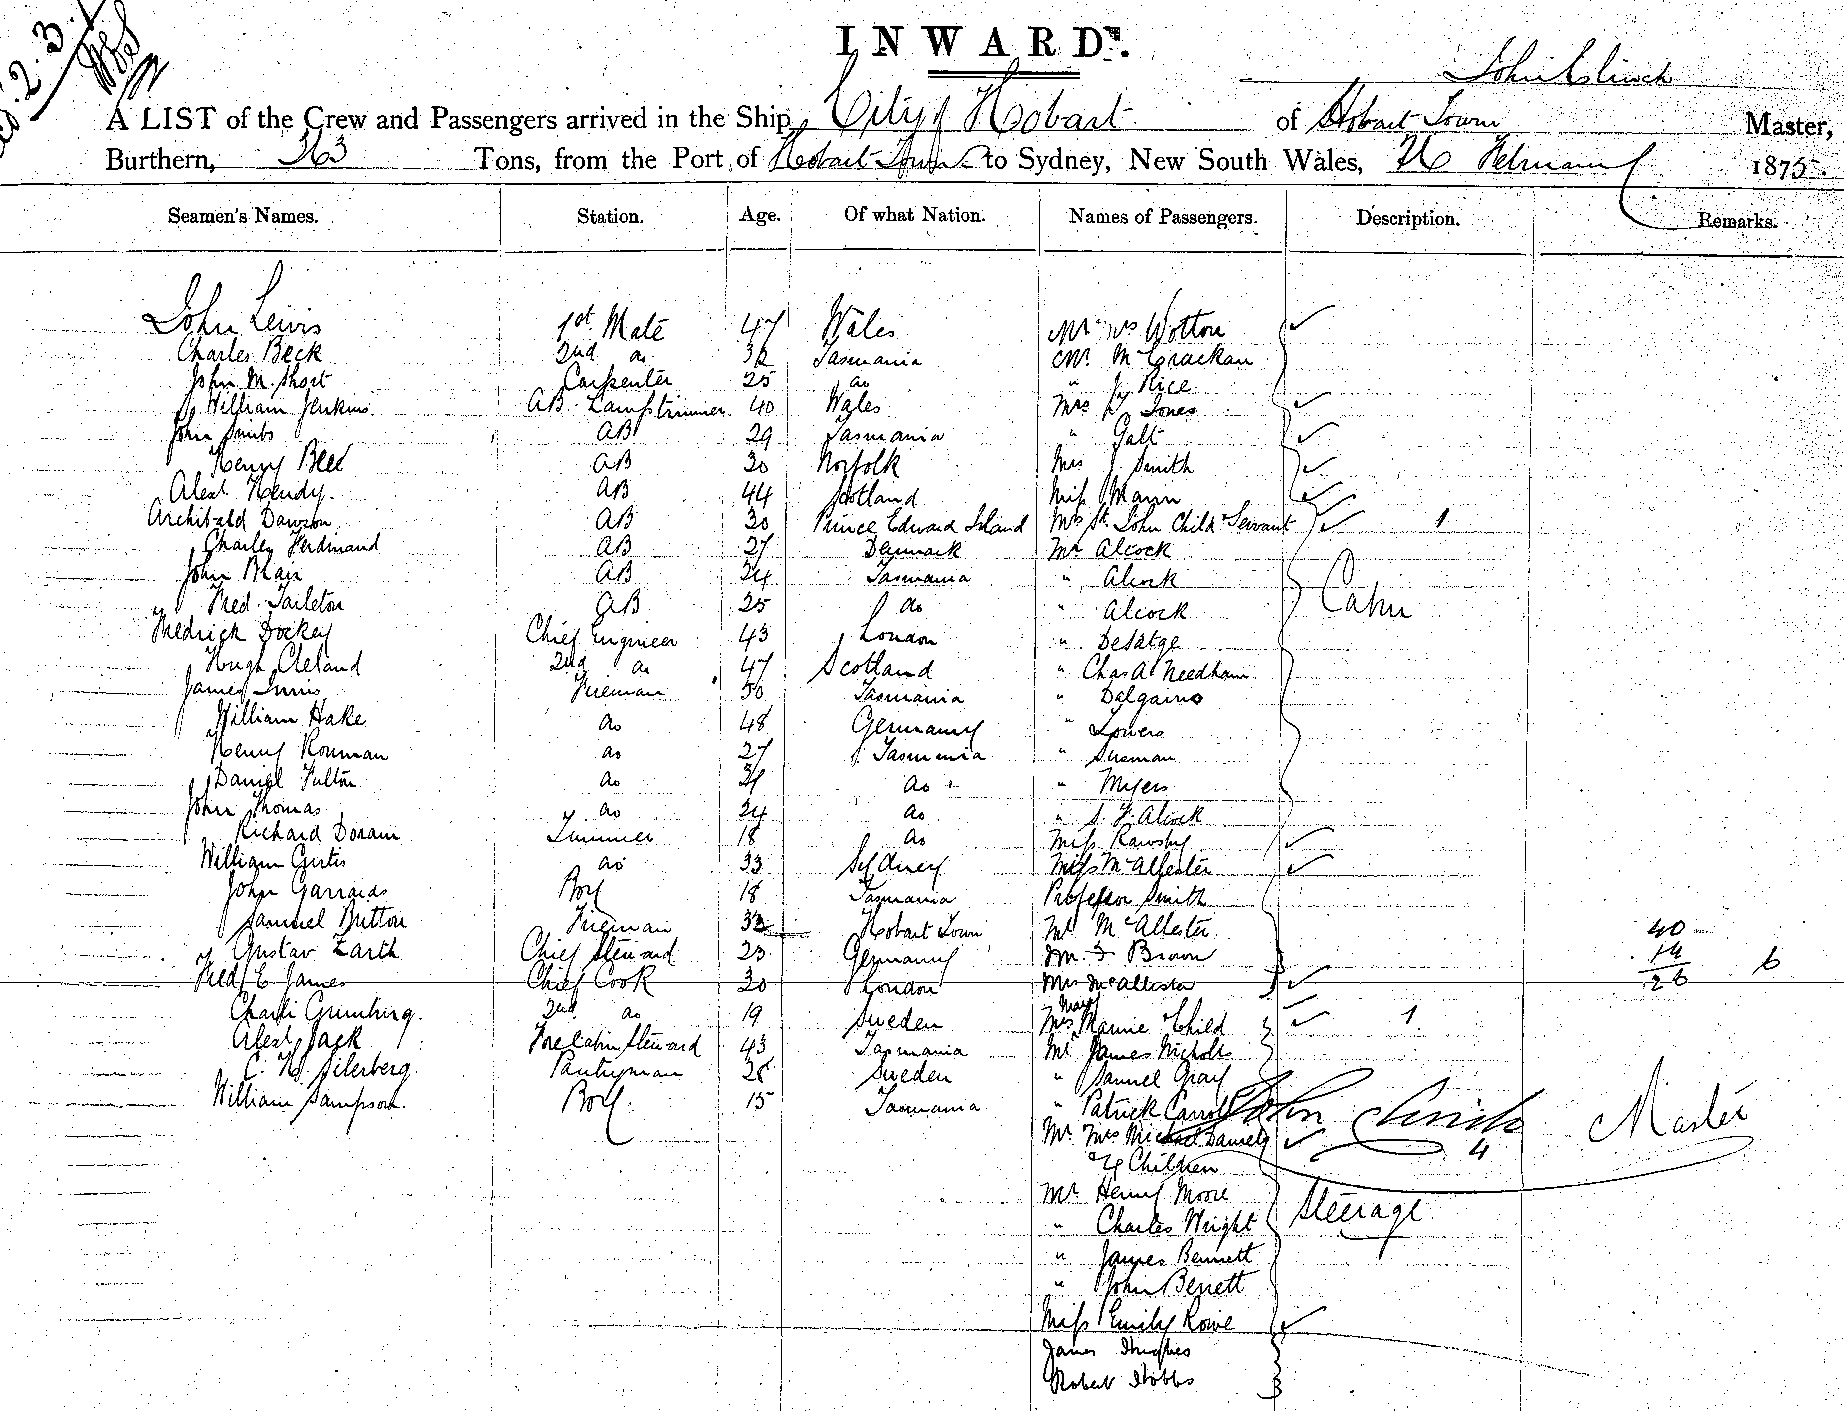 INWARDS.
John Clinch
A LIST of the Crew and Passengers arrived in the Ship City of Hobart of Hobart Town Master,
Burthern, 363 Tons, from the Port of Hobart Town to Sydney, New South Wales, February 1875
Seamen's Names. Station. Age. Of what Nation. Names of Passengers. Description. Remarks.
John Lewis 1st Mate 47 Wales Mr Mrs Wotton
Charles Beck 2nd do 32 Tasmania Mr McCrackan
John M. Short Carpenter 25 do " J Rice
William Jenkins AB Lamptrimmer 40 Wales Mrs Jones
John AB 29 Tasmania " Galt
Henry Bled AB 30 Norfolk Mrs J Smith
Alexr Hendy AB 44 Scotland Miss Mann
Archibald Dawson AB 30 Prince Edward Island Mrs St John Child & Servant 1
Charles Ferdinand AB 27 Denmark Mr Alcock
John Mair AB 24 Tasmania " Alcock
Fred. Tarleton AB 25 do " Alcock Cabin
Fredrick Dockey Chief Engineer 43 London " Desatge
Hugh Cleland 2nd do 47 Scotland " Chas A Needham
James Innis Fireman 50 Tasmania " Dalgairns
William Hake do 48 Germany " Lowers
Henry Rouman do 27 Tasmania " Susman
Daniel Fulton do do " Myers
John Thomas do 24 do " S. F. Alcock
Richard Doram Trimmer 18 do Miss Rawsby
William Curtis do 33 Sydney Miss McAllester
John Garrards Boy 18 Tasmania Professor Smith
Samuel Button Fireman 32 Hobart Town Mr McAllester 40
Gustav Zarth Chief Steward 23 Germany Brown 14
Fredk E James Chief Cook 30 London Mrs McAllester 26 6
Charls Grunberg 2nd do 19 Sweden Mrs Mannie & Child 1
Alexr Jack Fore Cabin Steward 43 Tasmania Mr James Nicholls
C. Silerberg Pantryman 28 Sweden " Samuel Gray
William Sampson Boy 15 Tasmania " Patrick Carroll John Clinch Master
Mr Mrs Michael Daniels 4
Children
Mr Henry Moore
" Charles Wright Steerage
" James Bennett
" John Benett
Miss Emily Rowe
James Hughes
Robert Hobbs